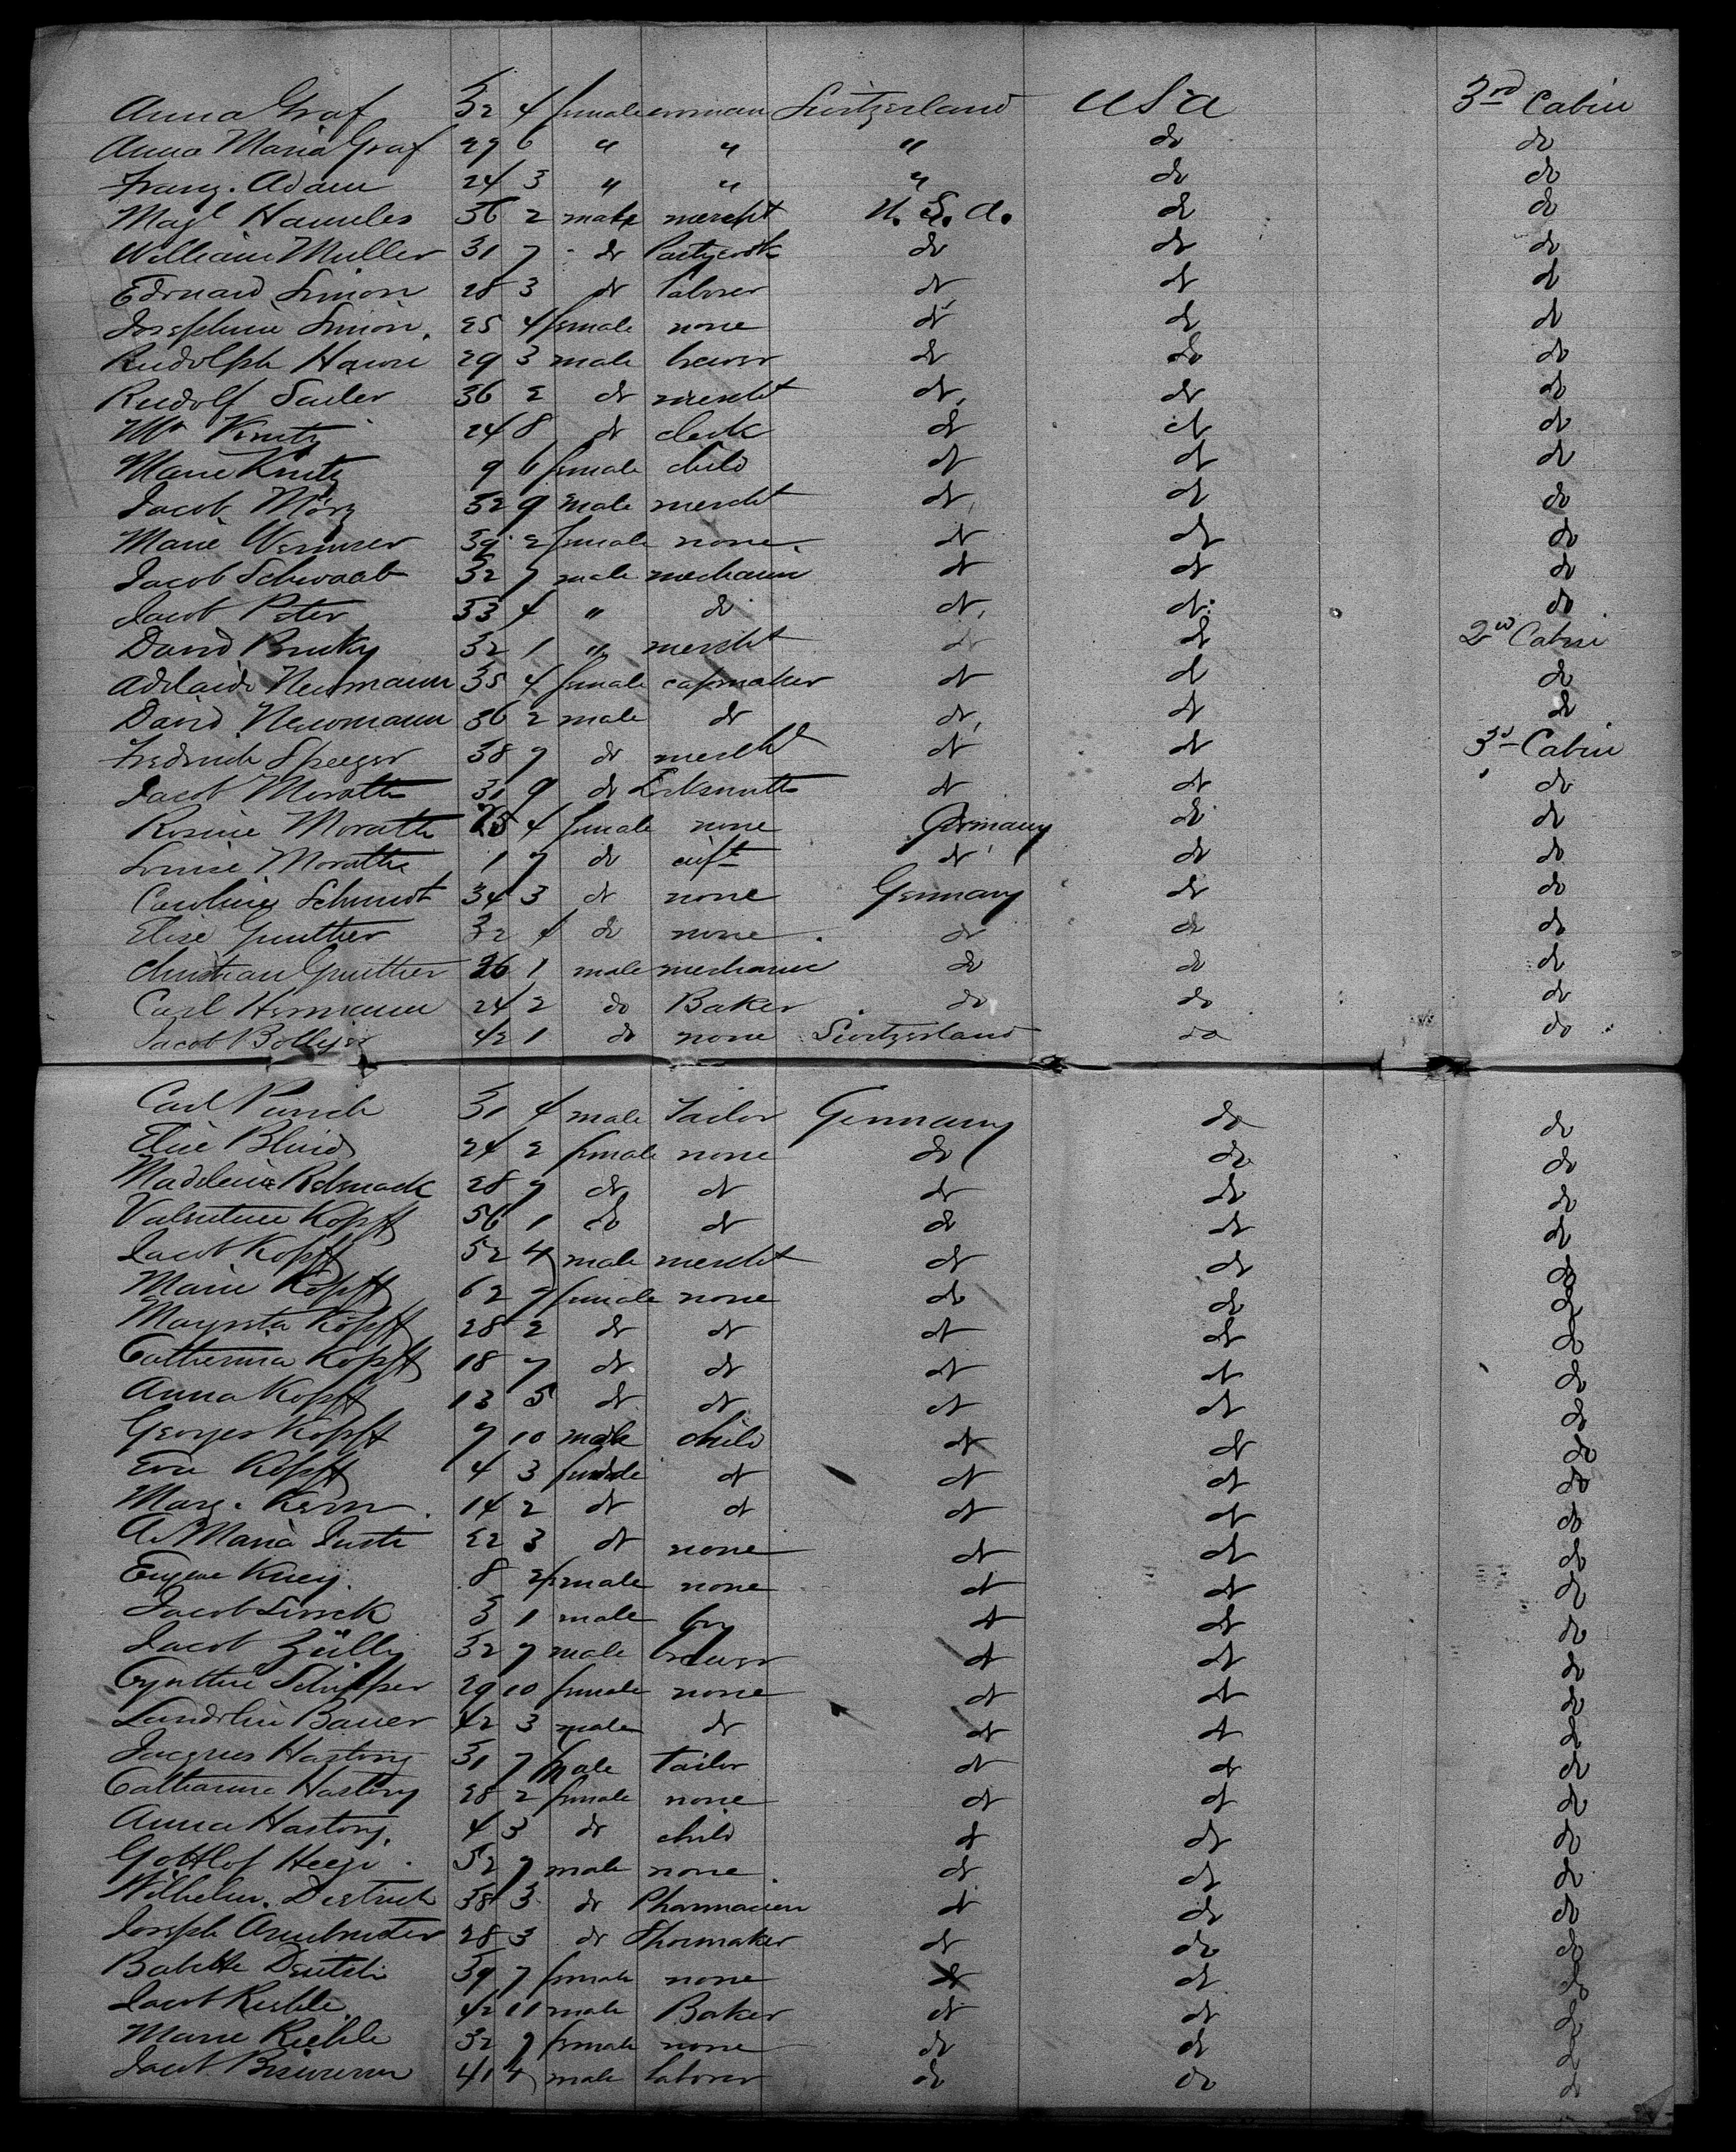 Anna Graf 32 4 female woman Switzerland USA 3rd Cabin
Anna Maria Graf 29 6 " " " do do
Franz. Adam 24 3 " " " do do
Magl 36 2 male mercht U. S. A. do do
William Muller 31 7 do do do do
Edouard Simon 28 3 do laborer do do do
Josephine Simon. 25 4 female none do do do
Rudolph 29 3 male brewer do do do
Rudolf Sailer 36 2 do mercht do do do
Mr 24 8 do clerk do do do
Marie 9 6 female child do do do
Jacob März 32 9 male mercht do do do
Marie 39 2 female none do do do
Jacob Schwaab 32 7 male mechanic do do do
Jacob Peter 33 4 " do do do do
David 32 1 " mercht do do 2nd Cabin
Adelaide Newmann 35 4 female capmaker do do do
David Newmann 36 2 male do do do do
Frederick 38 7 do mercht do do 3d Cabin
Jacob Morath 31 9 do Locksmith do do do
Rosine Morath 25 4 female none Germany do do
Louise Morath 1 7 do inft do do do
Caroline Schmidt 34 3 do none Germany do do
Elise Gunther 32 4 do none do do do
Christian Gunther 36 1 male mechanic do do do
Carl Hermann 24 2 do Baker do do do
Jacob 42 1 do none Switzerland do do
Carl 31 4 male Tailor Germany do do
Elise 24 2 female none do do do
Madeleine 28 7 do do do do do
Valentine Kopff 56 1 do do do do do
Jacob Kopff 52 4 male mercht do do do
Marie Kopff 62 7 female none do do do
Kopff 28 2 do do do do do
Catherina Kopff 18 7 do do do do do
Anna Kopff 13 5 do do do do do
Georges Kopff 7 10 male child do do do
Eva Kopff 4 3 female do do do do
Marg. Kern 14 2 do do do do do
A. Maria 22 3 do none do do do
Eugene 8 male none do do do
Jacob 3 1 male boy do do do
Jacob Zülly 32 7 male brewer do do do
29 10 female none do do do
Bauer 42 3 male do do do do
Jacques Hastong 31 7 male tailor do do do
Catharina Hastong 28 2 female none do do do
Anna Hastong. 4 3 do child do do do
Gottlof 52 7 male none do do do
Wilhelm. Dietrich 38 3 do Pharmacien do do do
Joseph Armbruster 28 3 do Shoemaker do do do
Babette Deutsch 39 7 female none do do do
Jacob Riehle 42 11 male Baker do do do
Marie Riehle 32 7 female none do do do
Jacob 41 4 male laborer do do do